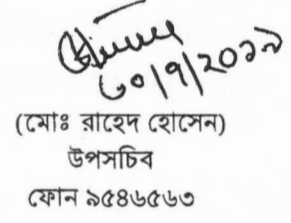 ৩০/৭/২০১৯
(মোঃ রাহেদ হোসেন)
উপসচিব
ফোন ৯৫৪৬৫৬৩